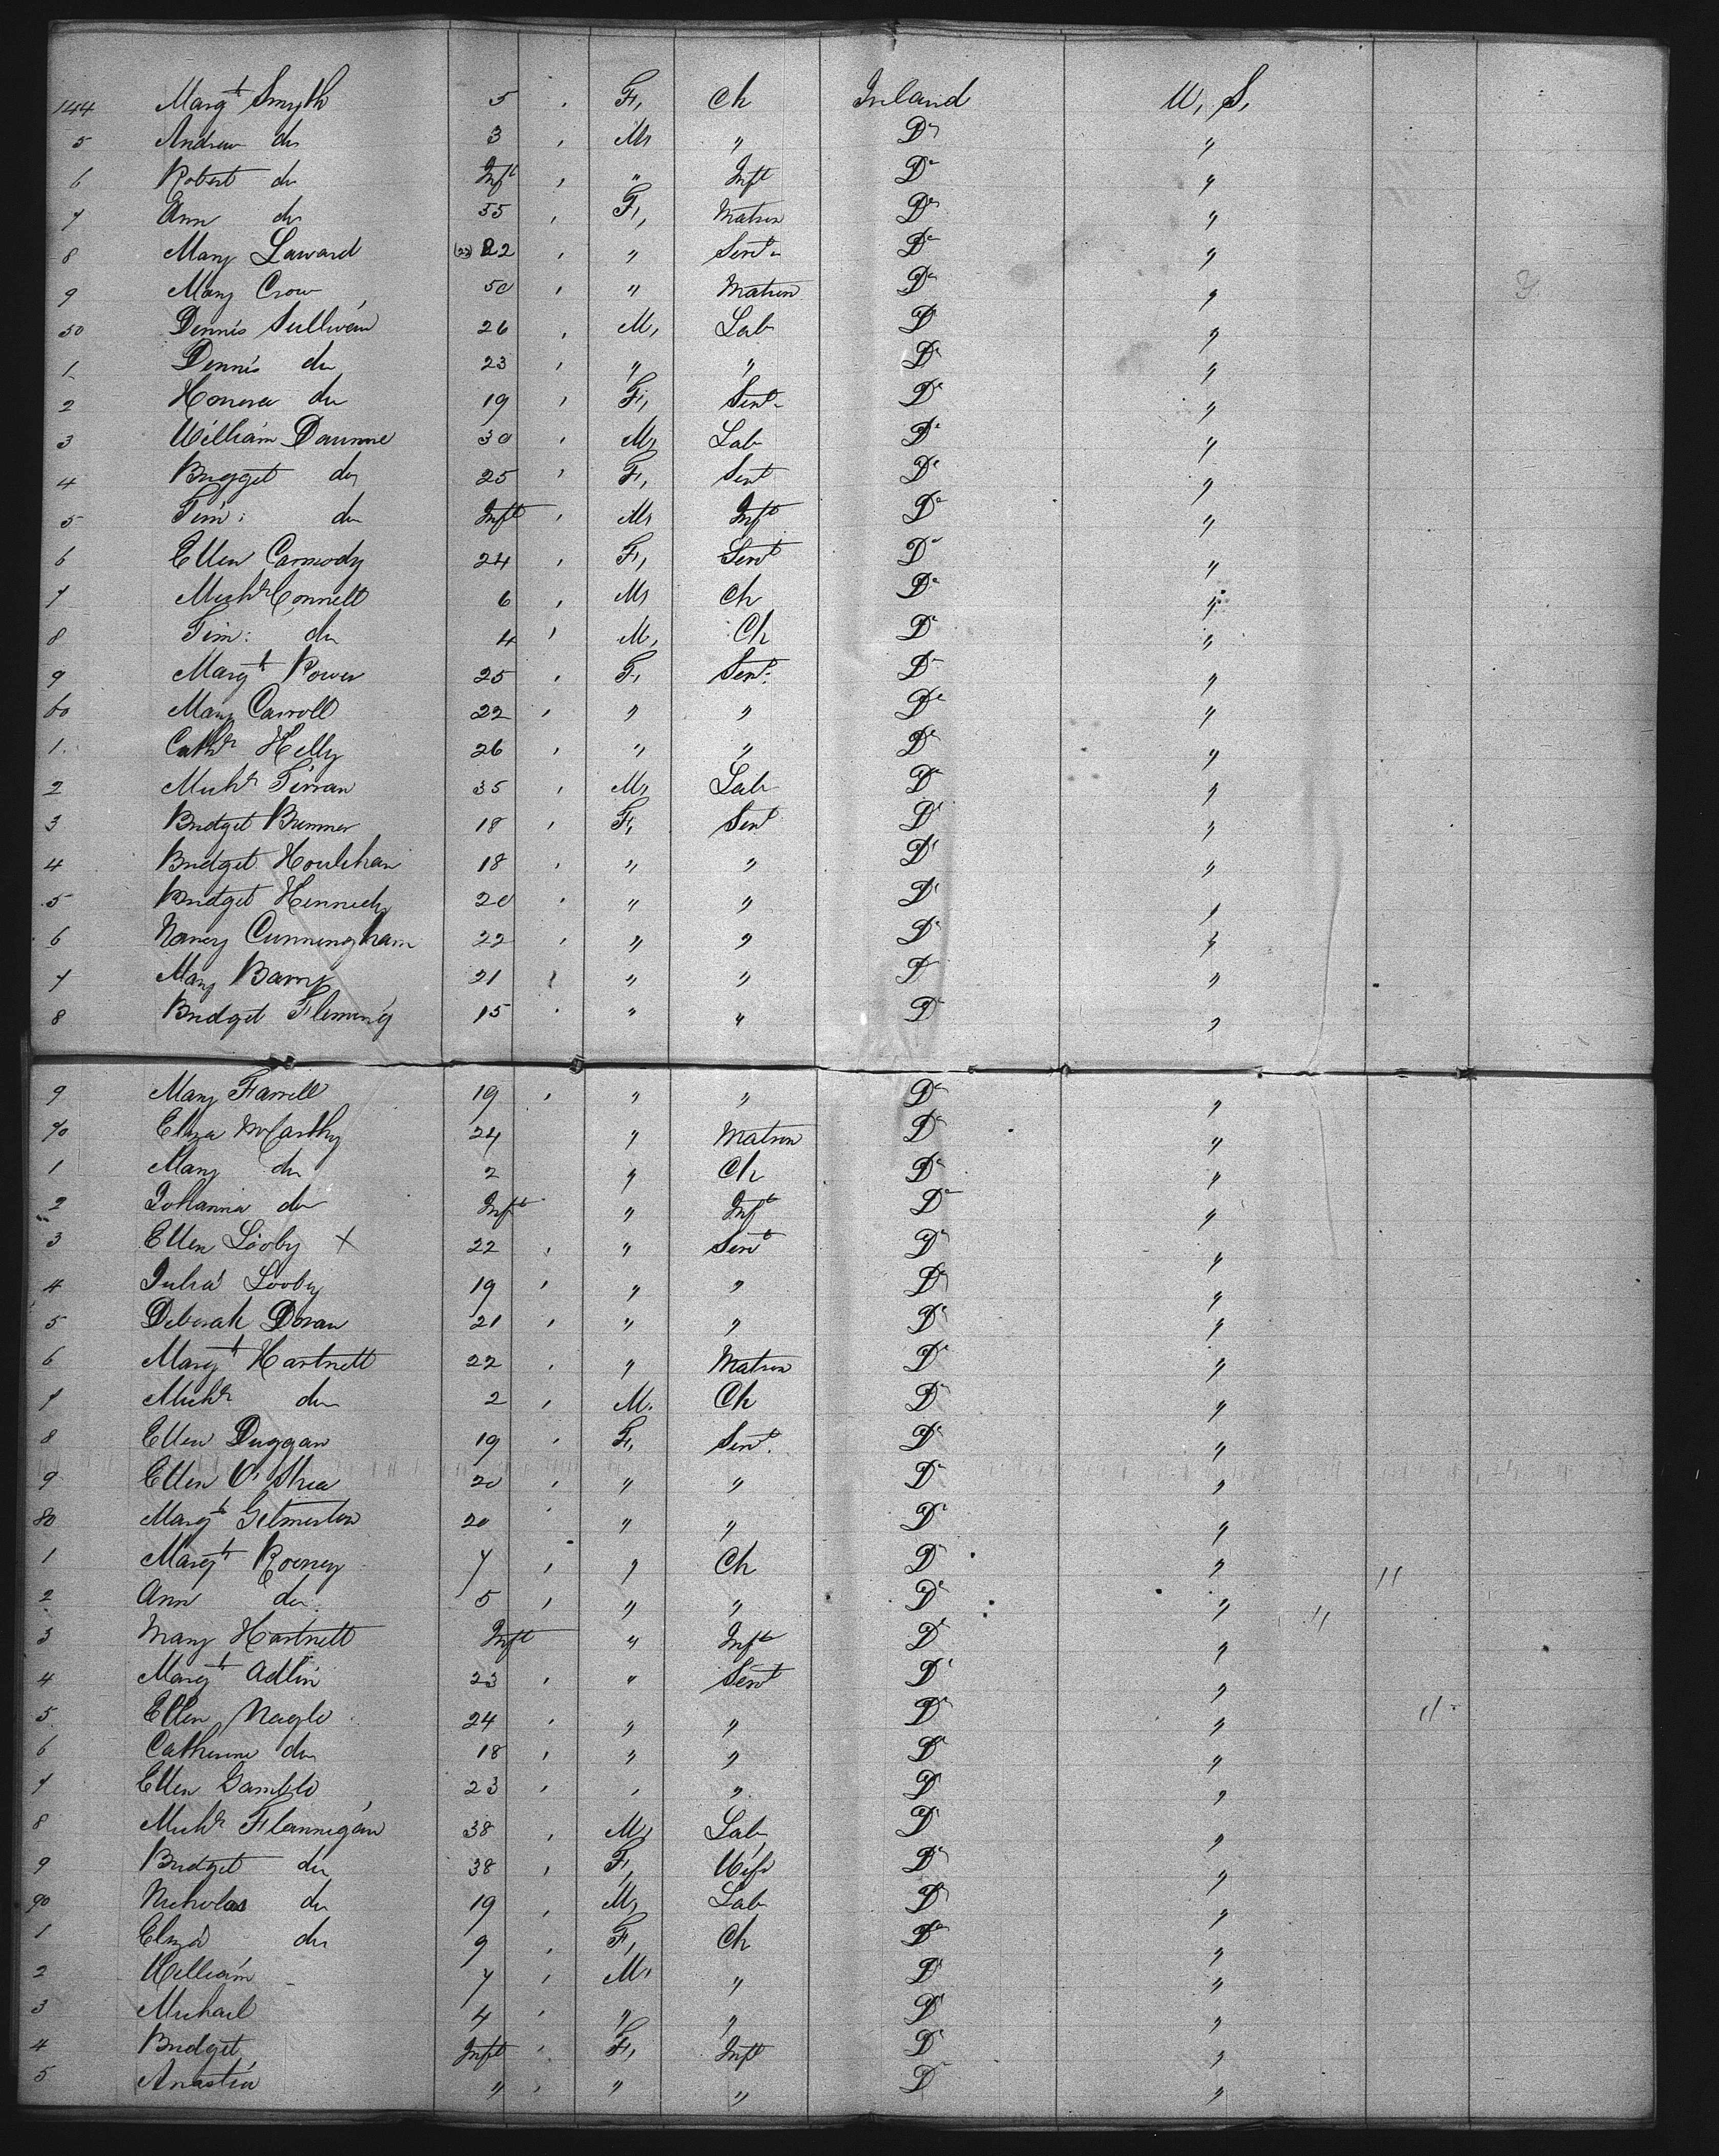 144 Margt Smyth 5 " F, Ch Ireland U, S,
5 Andrew do 3 " M, " Do "
6 Robert do Inft " " Inft Do "
7 Ann do 55 " F, Matron Do "
8 Mary Laward (22) 22 " " Servt Do "
9 Mary Crow 50 " " Matron Do "
50 Dennis Sullivan 26 " M, Lab Do "
1 Dennis do 23 " " " Do "
2 Honora do 19 " F, Servt Do "
3 William Daunne 30 " M, Lab Do "
4 Bridget do 25 " F, Servt Do "
5 Tim: do Inft " M, Inft Do "
6 Ellen Carmody 24 " F, Servt Do "
7 Michl Connell 6 " M, Ch Do "
8 Tim: do 4 " M, Ch Do "
9 Margt Power 25 " F, Servt: Do "
60 Mary Carroll 22 " " " Do "
1 Cathr Kelly 26 " " " Do "
2 Michl Tirran 35 " M, Lab Do "
3 Bridget Brenner 18 " F, Servt Do "
4 Bridget Houlihan 18 " " " Do "
5 Bridget 20 " " " Do "
6 Nancy Cunningham 22 " " " Do "
7 Mary Barry 21 " " " Do "
8 Bridget Fleming 15 " " " Do "
9 Mary Farrell 19 " " " Do "
70 Eliza McCarthy 24 " Matron Do "
1 Mary do 2 " Ch Do "
2 Johanna do Inft " Inft Do "
3 Ellen Looby X 22 " " Servt Do "
4 Julia Looby 19 " " " Do "
5 Deborah Doran 21 " " " Do "
6 Margt Hartnett 22 " " Matron Do "
7 Michl do 2 " M. Ch Do "
8 Ellen Duggan 19 " F, Servt. Do "
9 Ellen O'Shea 20 " " " Do "
80 Margt 20 " " " Do "
1 Margt Rooney 7 " " Ch Do " "
2 Ann do 5 " " " Do " "
3 Mary Hartnett Inft " Inft Do "
4 Margt Adlin 23 " " Servt Do "
5 Ellen Nagle 24 " " " Do " "
6 Catherine do 18 " " " Do "
7 Ellen Gamble 23 " " " Do "
8 Michl Flannigan 38 " M, Lab Do "
9 Bridget do 38 " F, Wife Do "
90 Nicholas do 19 " M, Lab Do "
1 Eliza do 9 " F, Ch Do "
2 William 7 " M, " Do "
3 Michael 4 " " " Do "
4 Bridget Inft " F, Inft Do "
5 Anastia " " " " Do "